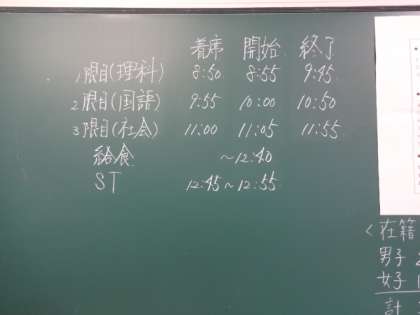 着席 開始 終了
1限目(理科) 8:50 8:55 9:45
2限目(国語) 9:55 10:00 10:50
3限目(社会) 11:00 11:05 11:55
給食 ～12:40
ST 12:45～12:55
く在籍
男子
女子
計